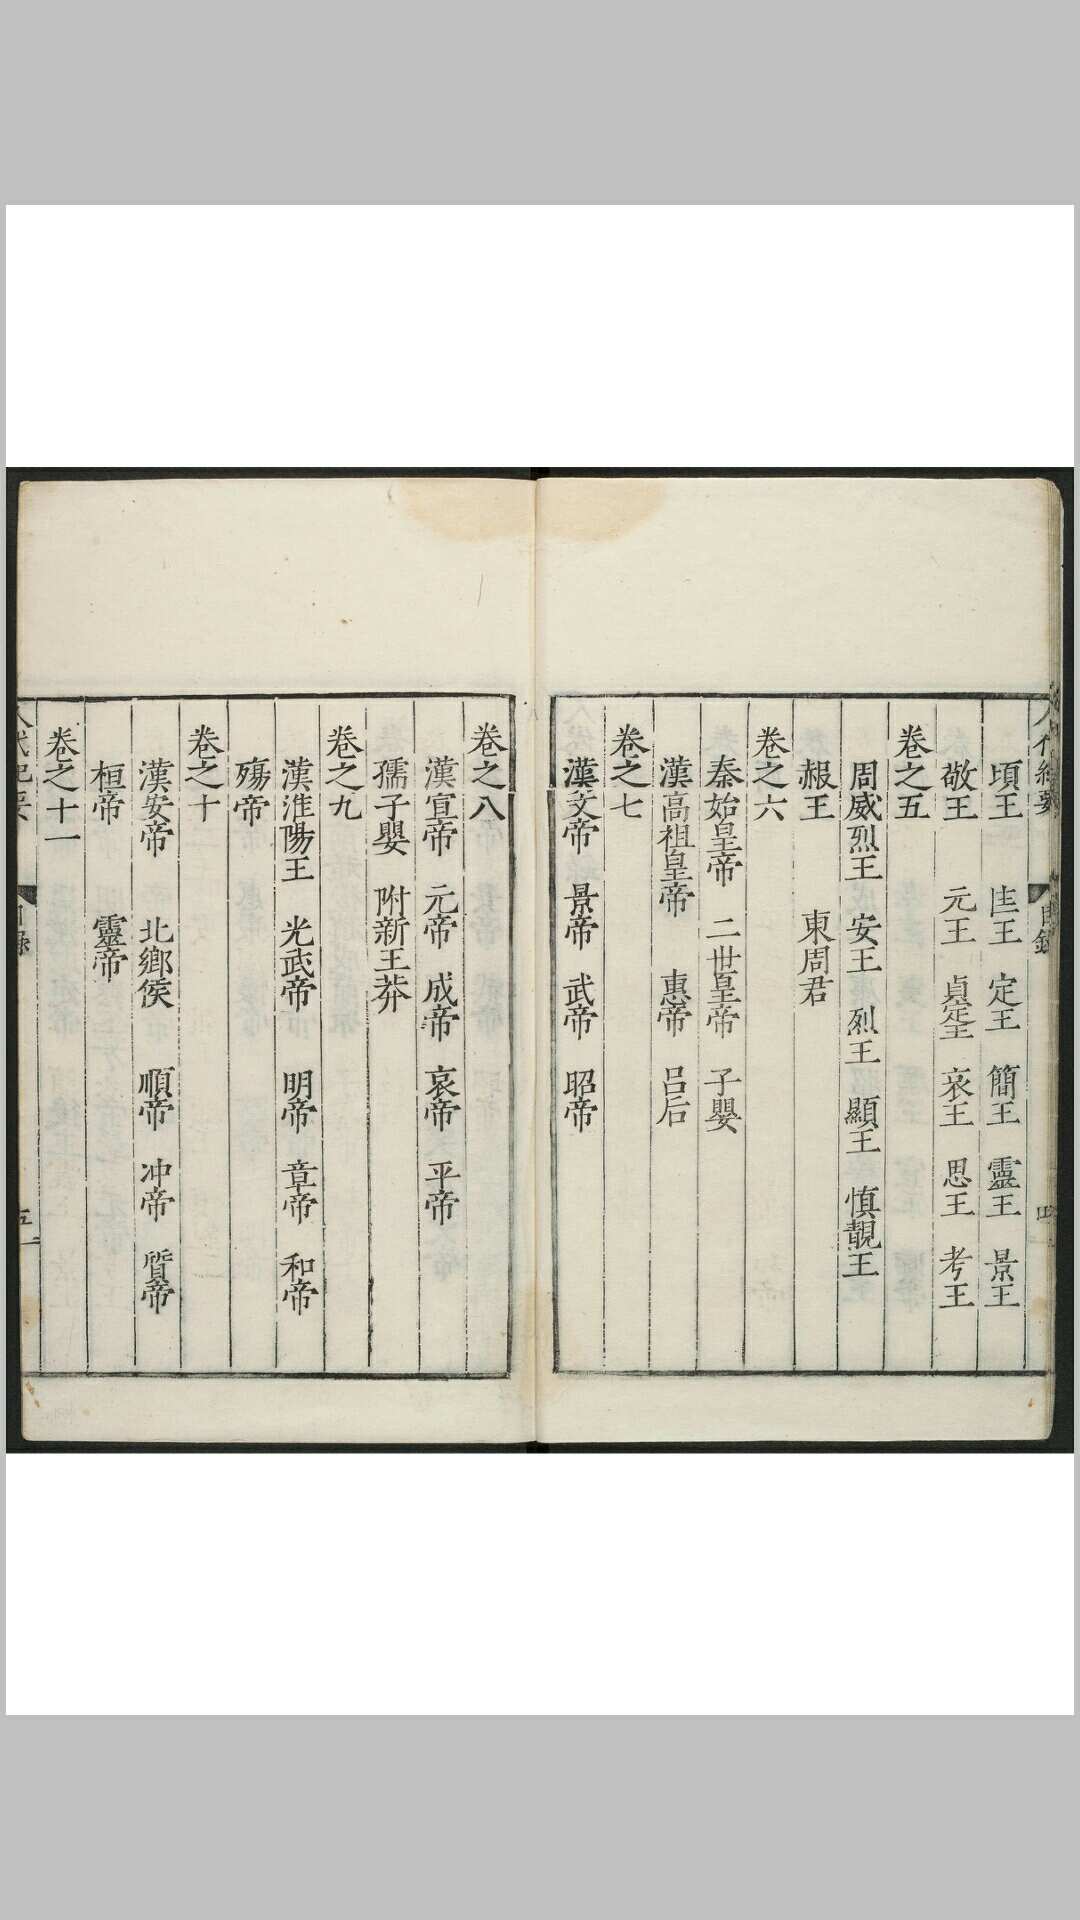 頃王 匡王 定王 簡王 靈王 景王
敬王 元王 貞定王 哀王 思王 考王
卷之五
周威烈王 安王 烈王 顯王 慎靚王
赧王 東周君
卷之六
秦始皇帝 二世皇帝 子嬰
漢高祖皇帝 惠帝 呂后
卷之七
漢文帝 景帝 武帝 昭帝
卷之八
漢宣帝 元帝 成帝 哀帝 平帝
孺子嬰 附新王莽
卷之九
漢淮陽王 光武帝 明帝 章帝 和帝
殤帝
卷之十
漢安帝 北鄉侯 順帝 冲帝 質帝
桓帝 靈帝
卷之十一